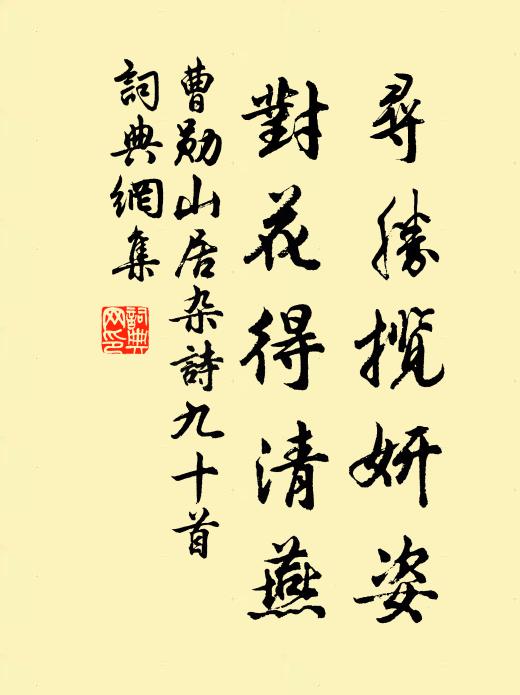 尋勝攬妍姿
對花得清燕
曹勛山居杂詩九十首
詞典網集
詞典
网印